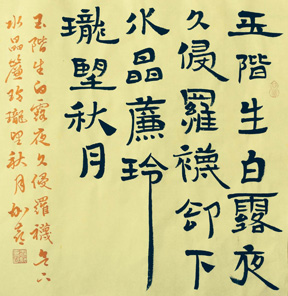 玉階生白露夜
久侵羅襪卻下
水晶簾玲
瓏望秋月
玉階生白露夜久侵羅襪卻下
水晶簾玲瓏望秋月